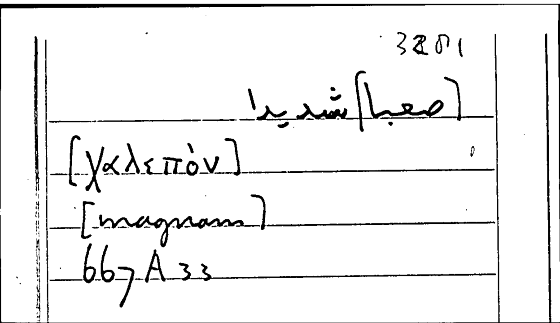 [صعبا] شديدا
[χαλεπόν]
[magnam]
667 A 33